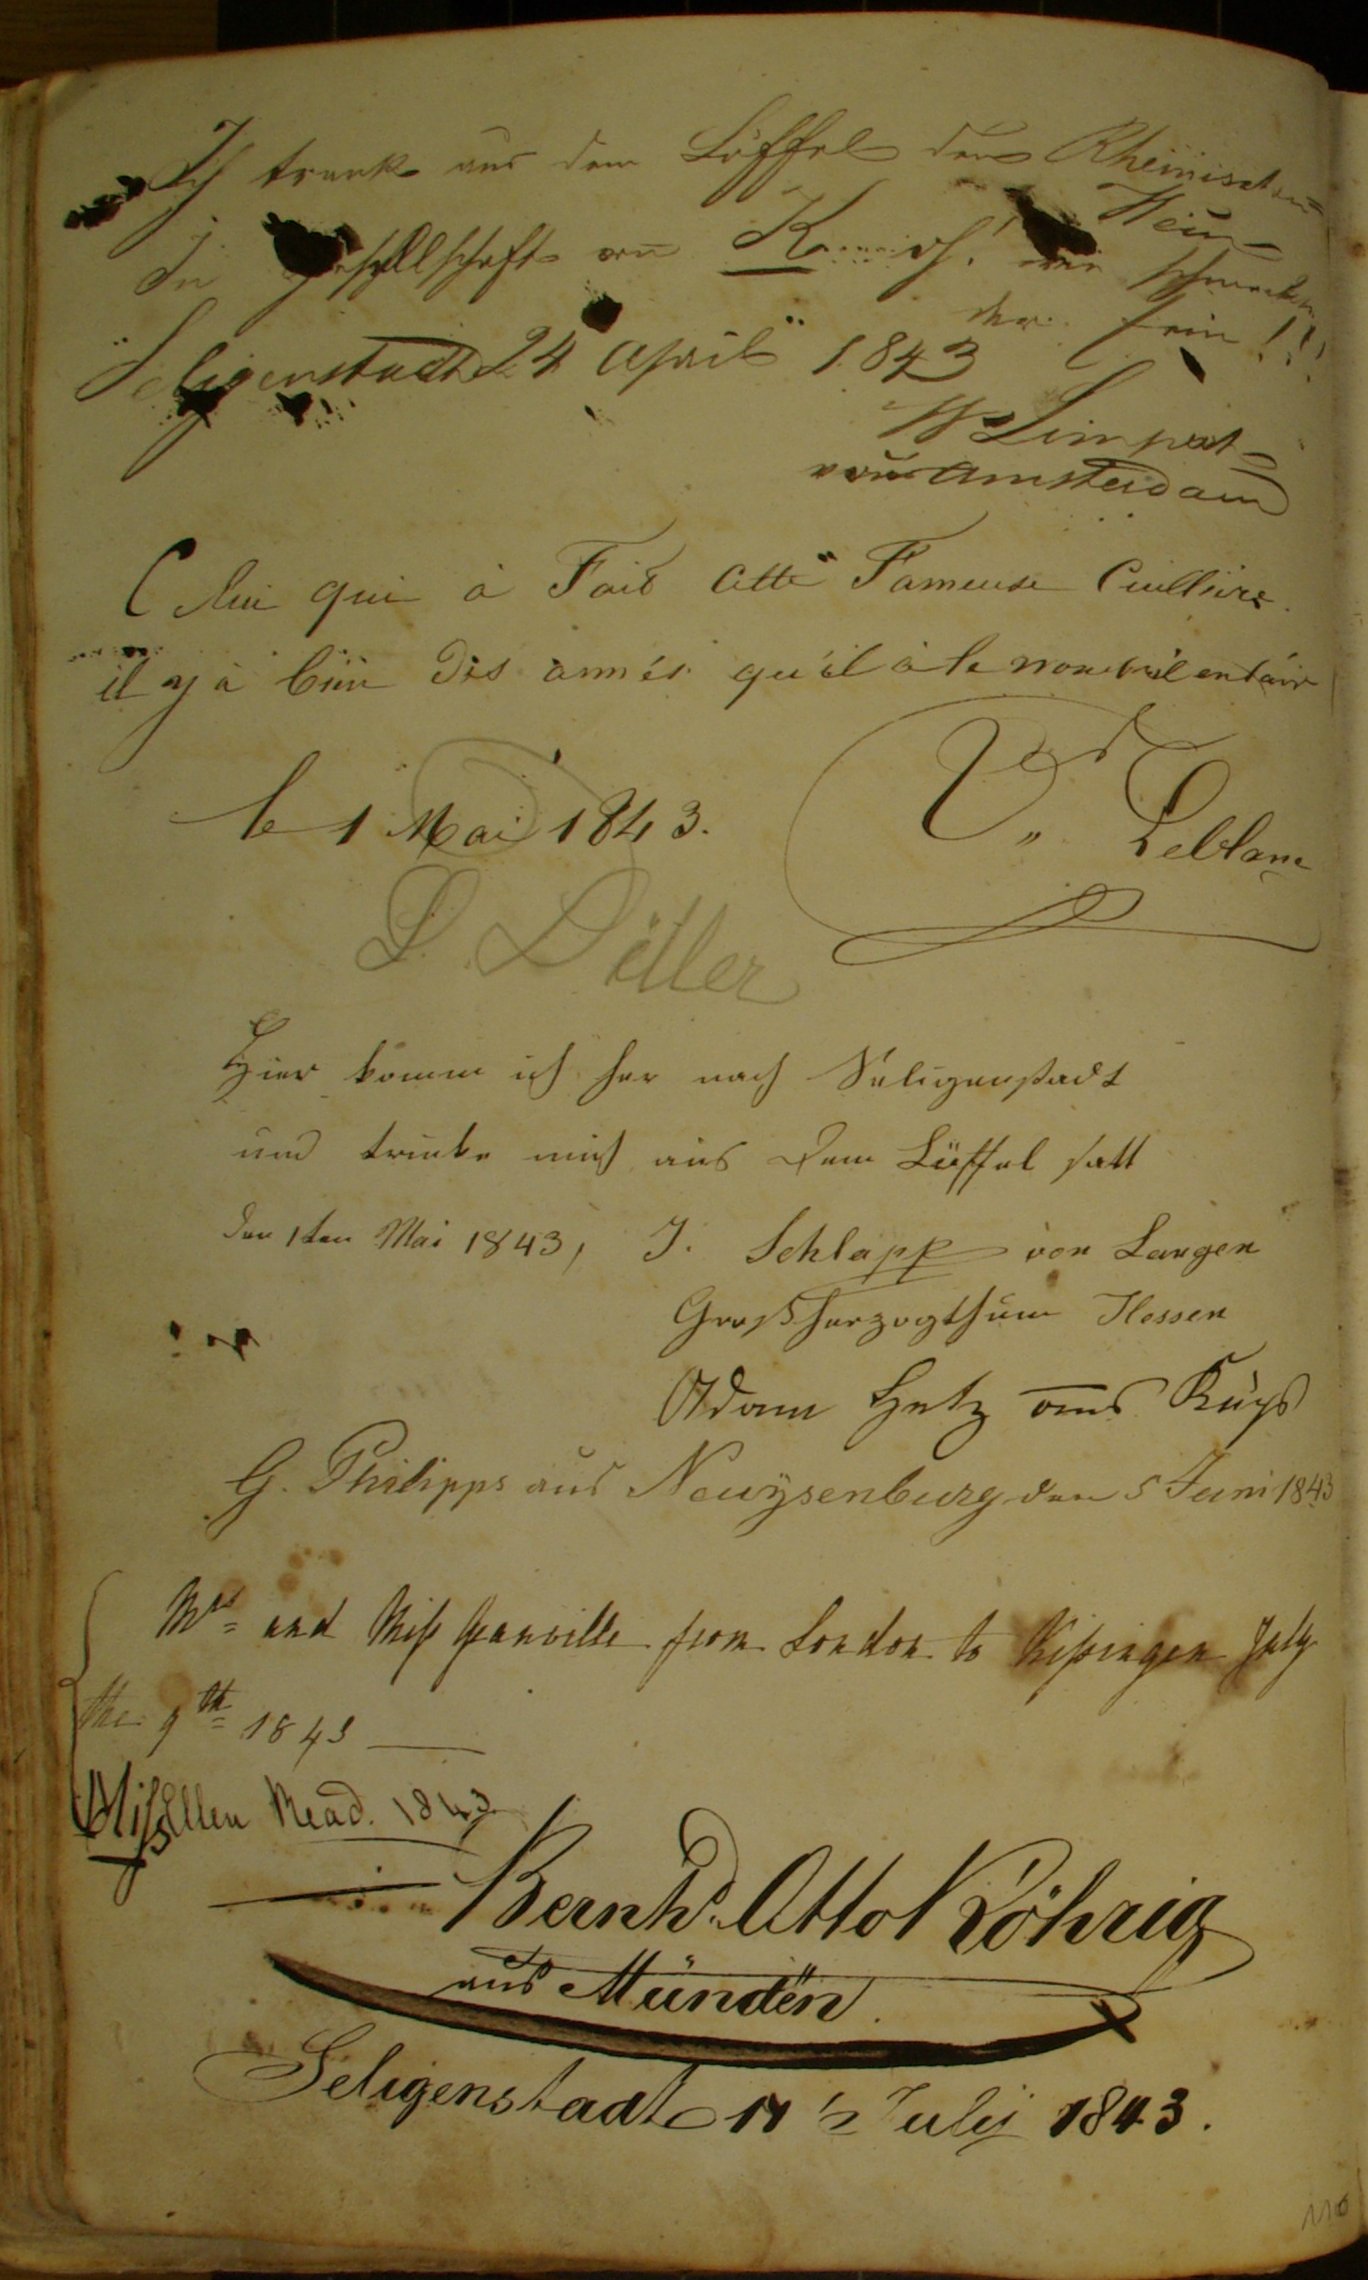 Ich trank aus dem Löffel den Rheinischen
Wein
in Gesellschaft von wie schmeckte
der fein!!!
Seligenstadt 24 April 1843
von Amsterdam
Celui qui à Fait Cette Fameuse Cuillière
il y à bien Dés années qu'il à le
le 1 Mai 1843.
Leblanc
Hier komm ich her nach Seligenstadt
und trinke mich aus dem Löffel satt
den 1ten Mai 1843, J. Schlapp von Langen
Großherzogthum Hessen
Adam Hetz aus
G. Philipps aus Neuysenburg den 5 Juni 1843
Mrs and Miss Granville from London to Kissingen July
the 9th 1843
Miss Ellen Read. 1843
Bernhd. Otto Röhrig
aus Münden.
Seligenstadt July 1843.
110